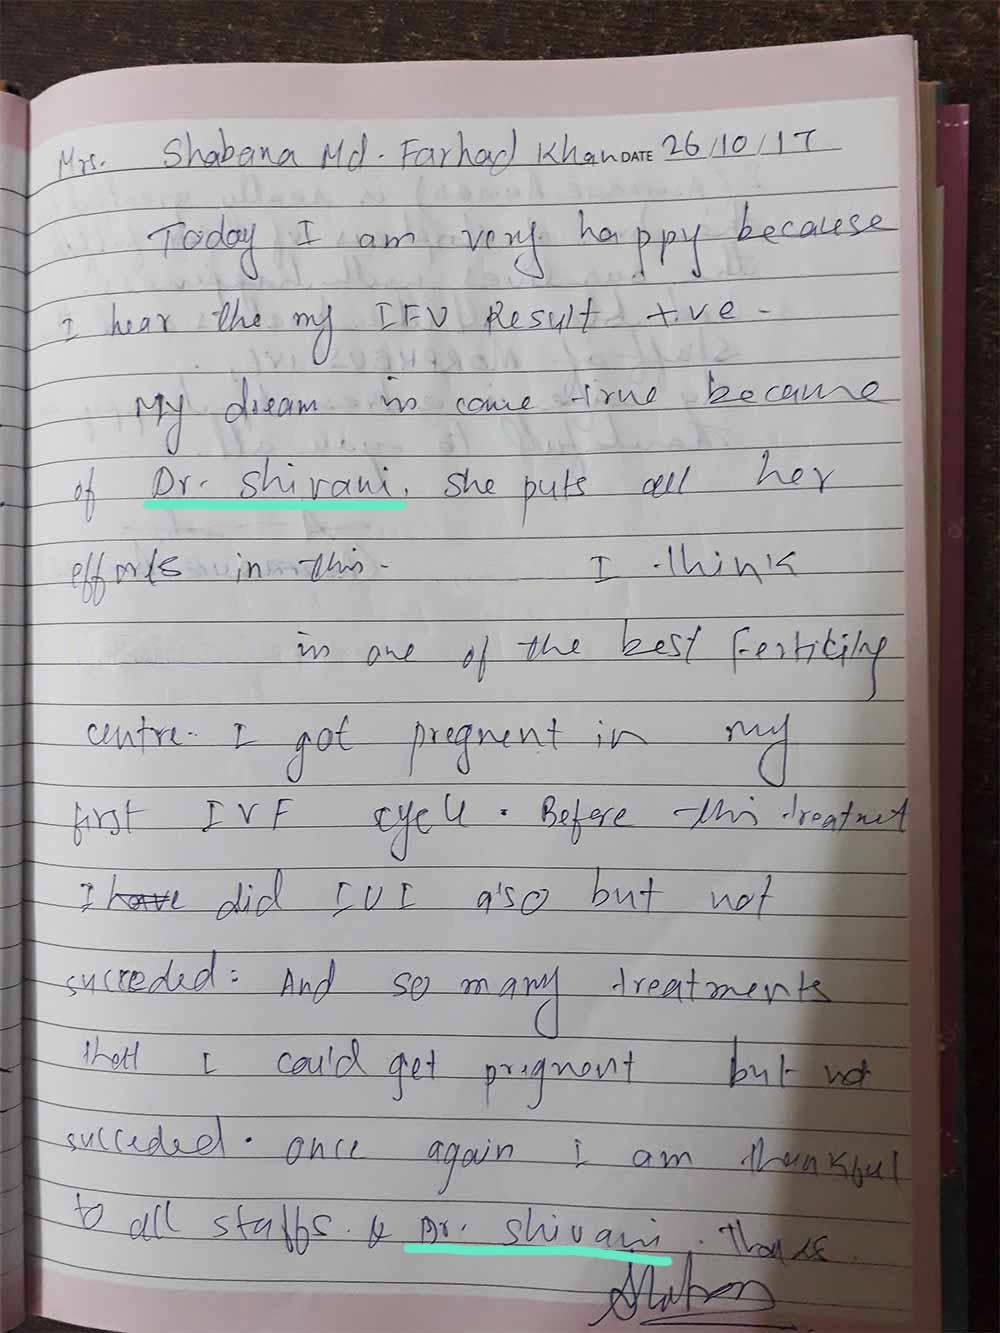 Mrs. Shabana Md. Farhad Khan DATE 26/10/17
Today I am very happy because
I hear the my IFV Result +ve -
My dream is come true because
of Dr. Shivani. She puts all her
efforts in this. I think
is one of the best Fertility
centre. I got pregnent in my
first IVF cycle. Before this treatnet
I have did IUI also but not
succeded. And so many treatments
that I could get pregnent but not
succeded. once again I am thankful
to all staffs. & Dr. Shivani. Thanks